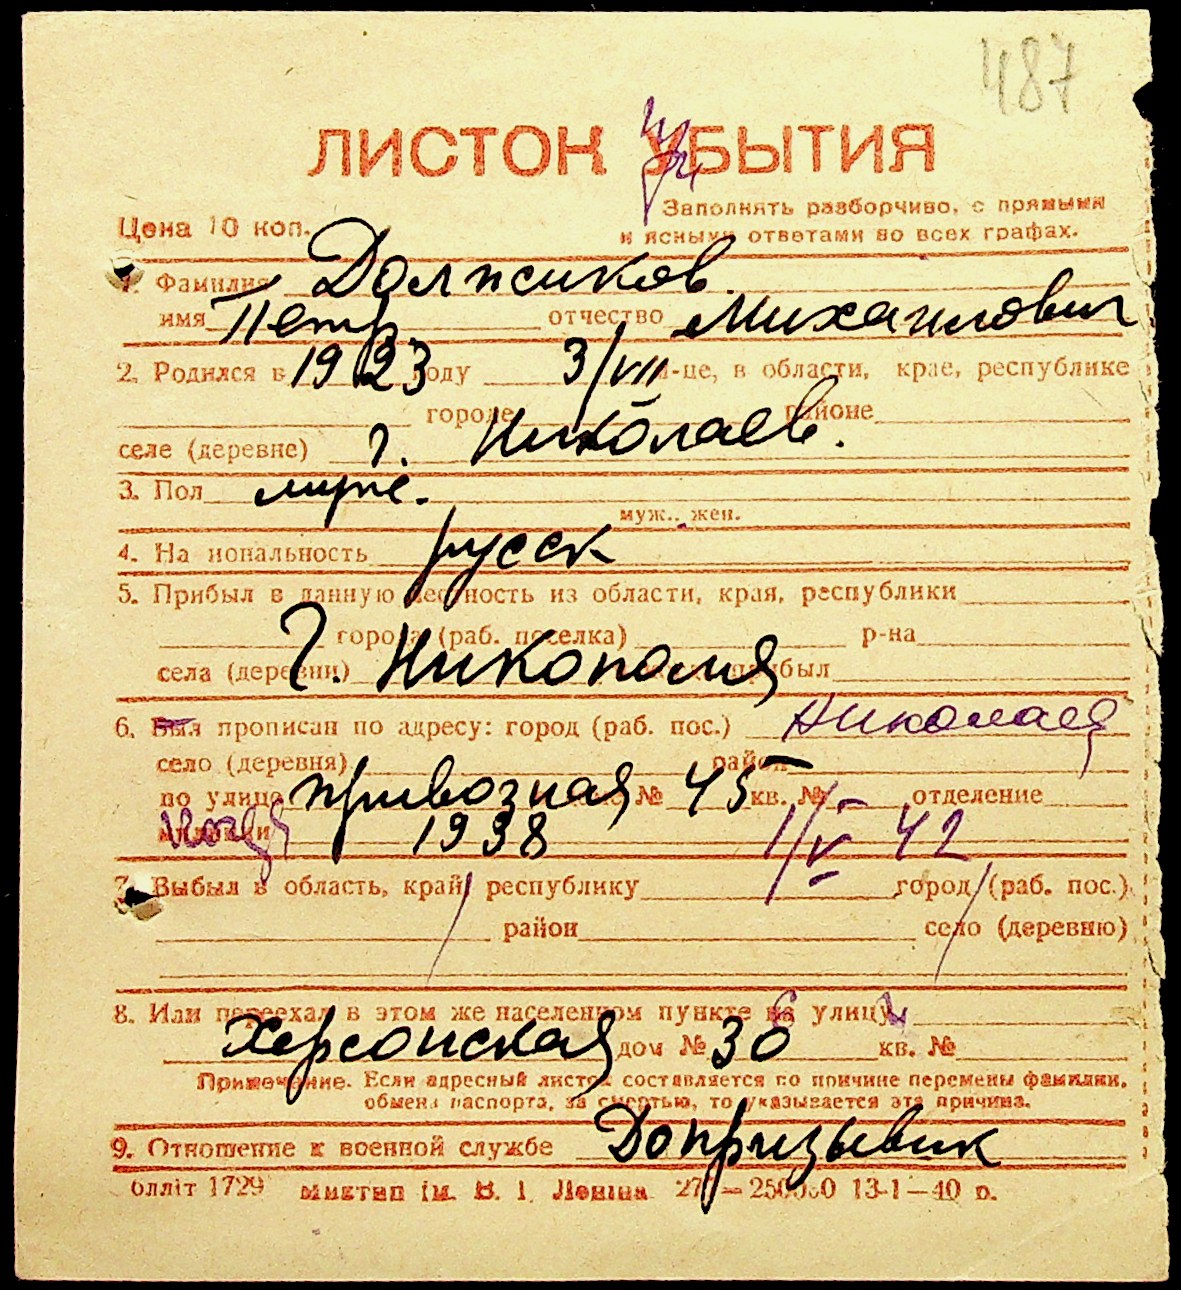 487
ЛИСТОК УБЫТИЯ
Заполнять разборчиво, с прямыми
Цена 10 коп. и ясными ответами во всех графах.
1. Фамилия Должиков.
имя Петр отчество Михаилович
2. Родился в 1923 году 3/VII м-це, в области, крае, республике
городе районе
селе (деревне) г. Николаев.
3. Пол муж.
муж., жен.
4. Национальность русск
5. Прибыл в данную местность из области, края, республики
города (раб. поселка) р-на
села (деревни) г. Никополя прибыл
6. Был прописан по адресу: город (раб. пос.) Николаев
село (деревня) район
по улице Привозная № 45 кв. № отделение
милиции 1938 1/V 42
7. Выбыл в область, край, республику город (раб. пос.)
район село (деревню)
8. Или переехал в этом же населенном пункте на улицу
Херсонская дом № 30 кв. №
Примечание. Если адресный листок составляется по причине перемены фамилии,
обмена паспорта, за смертью, то указывается эта причина.
9. Отношение к военной службе Допризывник
олліт 1729 Миктип ім. В. І. Леніна 27 — 250000 13-1—40 р.